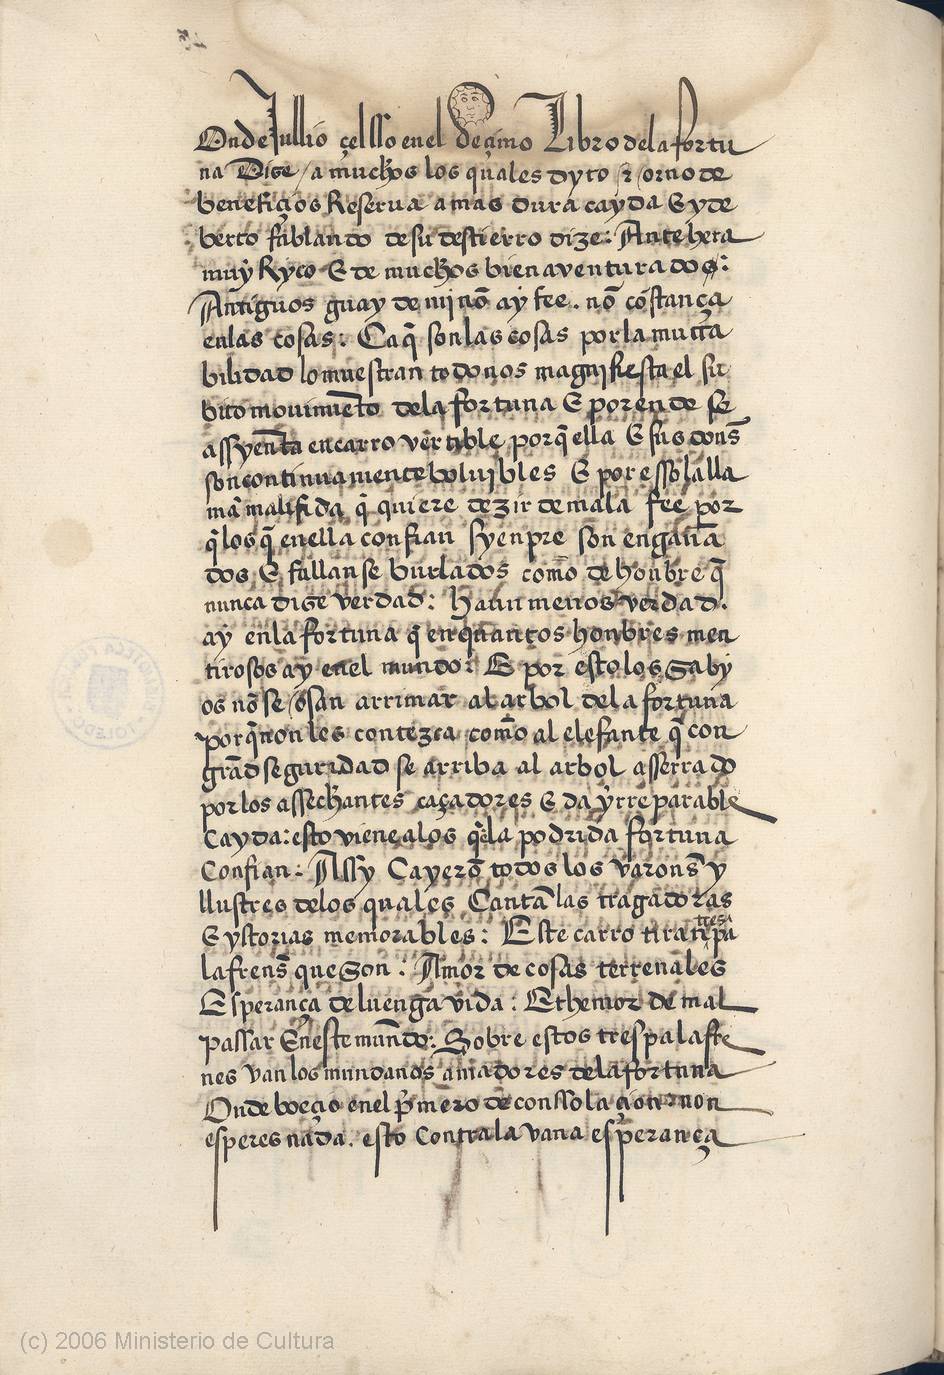 Onde Jullio çelsso en el deçimo Libro de la fortu
na Dise / a muchos los quales dyto & orno de
benefiçios Reserua a mas dura cayda E yde
berto fablando de su destierro dize: Ante hera
muy Ryco E de muchos bien aventurados:
Antiguos guay de mi nõ ay fee. nõ cõstança
en las cosas: Ca q̃ son las cosas por la muta
bilidad lo muestran todo nos magnifiesta el su
bito movimiẽto de la fortuna E por ende se
assyenta en carro vertible porq̃ ella E sus dons̃
son continuamente boluibles E por esso salla
mã malifida q̃ quiere dezir de mala fee por
q̃ los q̃ en ella confian syenpre son engaña
dos E fallanse burlados como de honbre q̃
nunca dise verdad: Haun menos verdad.
ay en la fortuna q̃ en quantos honbres men
tirosos ay en el mundo: E por esto los saby
os nõ se osan arrimar al arbol de la fortuna
porq̃ non les contezca como al elefante q̃ con
grãd seguridad se arriba al arbol asserrado
por los assechantes caçadores E da yrreparable
Cayda: esto viene a los q̃ en la podrida fortuna
Confian: Assy Cayerõ todos los varons̃ y
llustres de los quales Cantã las tragadoras
E ystorias memorables: Este carro tiran tres pa
lafrens̃ que son: Amor de cosas terrenales
Esperança de luenga vida: E themor de mal
passar En este mũndo: Sobre estos tres palafre
nes van los mundanos amadores de la fortuna
Onde boeçio en el p̃mero de conssolaçion non
esperes nada. esto Contra la vana esperança
(c) 2006 Ministerio de Cultura